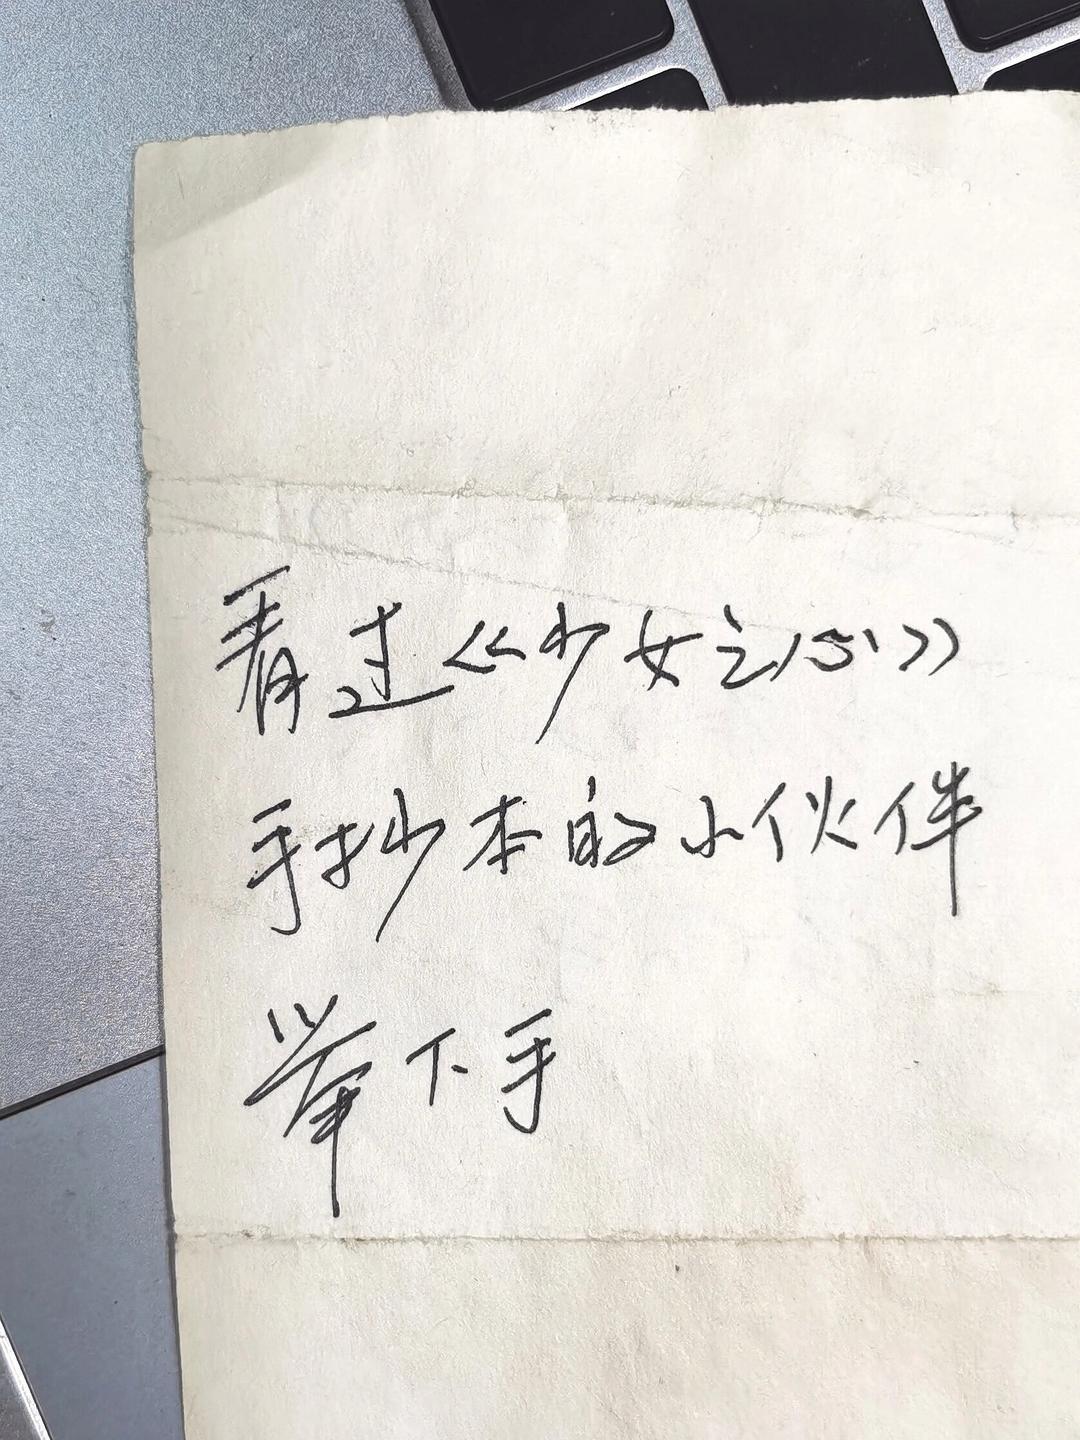 看过《少女之心》
手抄本的小伙伴
举下手